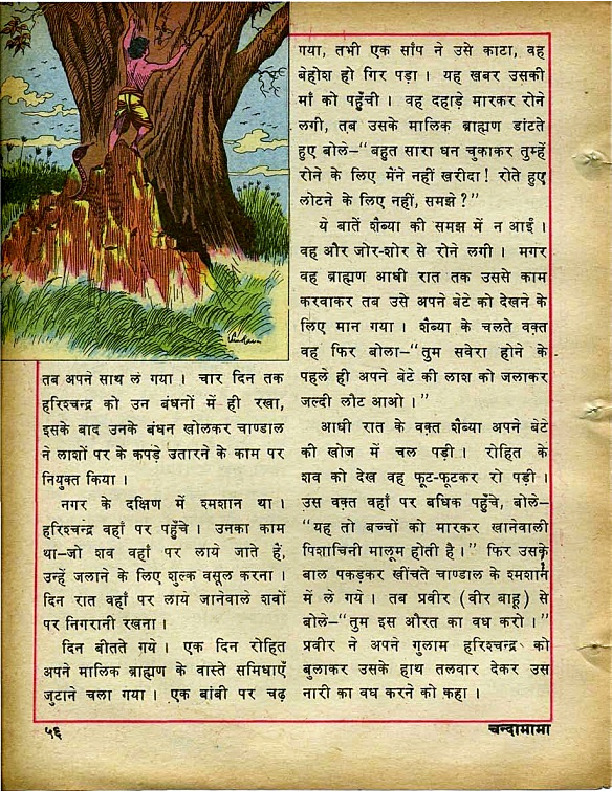 तब अपने साथ ले गया । चार दिन तक
हरिश्चन्द्र को उन बंधनों में ही रखा,
इसके बाद उनके बंधन खोलकर चाण्डाल
ने लाशों पर के कपड़े उतारने के काम पर
नियुक्त किया ।
नगर के दक्षिण में श्मशान था ।
हरिश्चन्द्र वहाँ पर पहुँचे । उनका काम
था-जो शव वहाँ पर लाये जाते हैं,
उन्हें जलाने के लिए शुल्क वसूल करना ।
दिन रात वहाँ पर लाये जानेवाले शवों
पर निगरानी रखना ॥
दिन बीतते गये । एक दिन रोहित
अपने मालिक ब्राह्मण के वास्ते समिधाएँ
जुटाने चला गया । एक बांबी पर चढ़
गया, तभी एक साँप ने उसे काटा, वह
बेहोश हो गिर पड़ा । यह खबर उसकी
माँ को पहुँची । वह दहाड़े मारकर रोने
लगी, तब उसके मालिक ब्राह्मण डांटते
हुए बोले-“बहुत सारा धन चुकाकर तुम्हें
रोने के लिए मैंने नहीं खरीदा! रोते हुए
लोटने के लिए नहीं, समझे ?”
ये बातें शैब्या की समझ में न आईं ।
वह और जोर-शोर से रोने लगी । मगर
वह ब्राह्मण आधी रात तक उससे काम
करवाकर तब उसे अपने बेटे को देखने के
लिए मान गया । शैब्या के चलते वक़्त
वह फिर बोला-“तुम सवेरा होने के
पहले ही अपने बेटे की लाश को जलाकर
जल्दी लौट आओ ।”
आधी रात के वक़्त शैब्या अपने बेटे
की खोज में चल पड़ी । रोहित के
शव को देख वह फूट-फूटकर रो पड़ी ।
उस वक़्त वहाँ पर बधिक पहुँचे, बोले-
“यह तो बच्चों को मारकर खानेवाली
पिशाचिनी मालूम होती है ।” फिर उसके
बाल पकड़कर खींचते चाण्डाल के श्मशान
में ले गये । तब प्रवीर (वीर बाहू) से
बोले-“तुम इस औरत का वध करो ।”
प्रवीर ने अपने गुलाम हरिश्चन्द्र को
बुलाकर उसके हाथ तलवार देकर उस
नारी का वध करने को कहा ।
५६
चन्दामामा